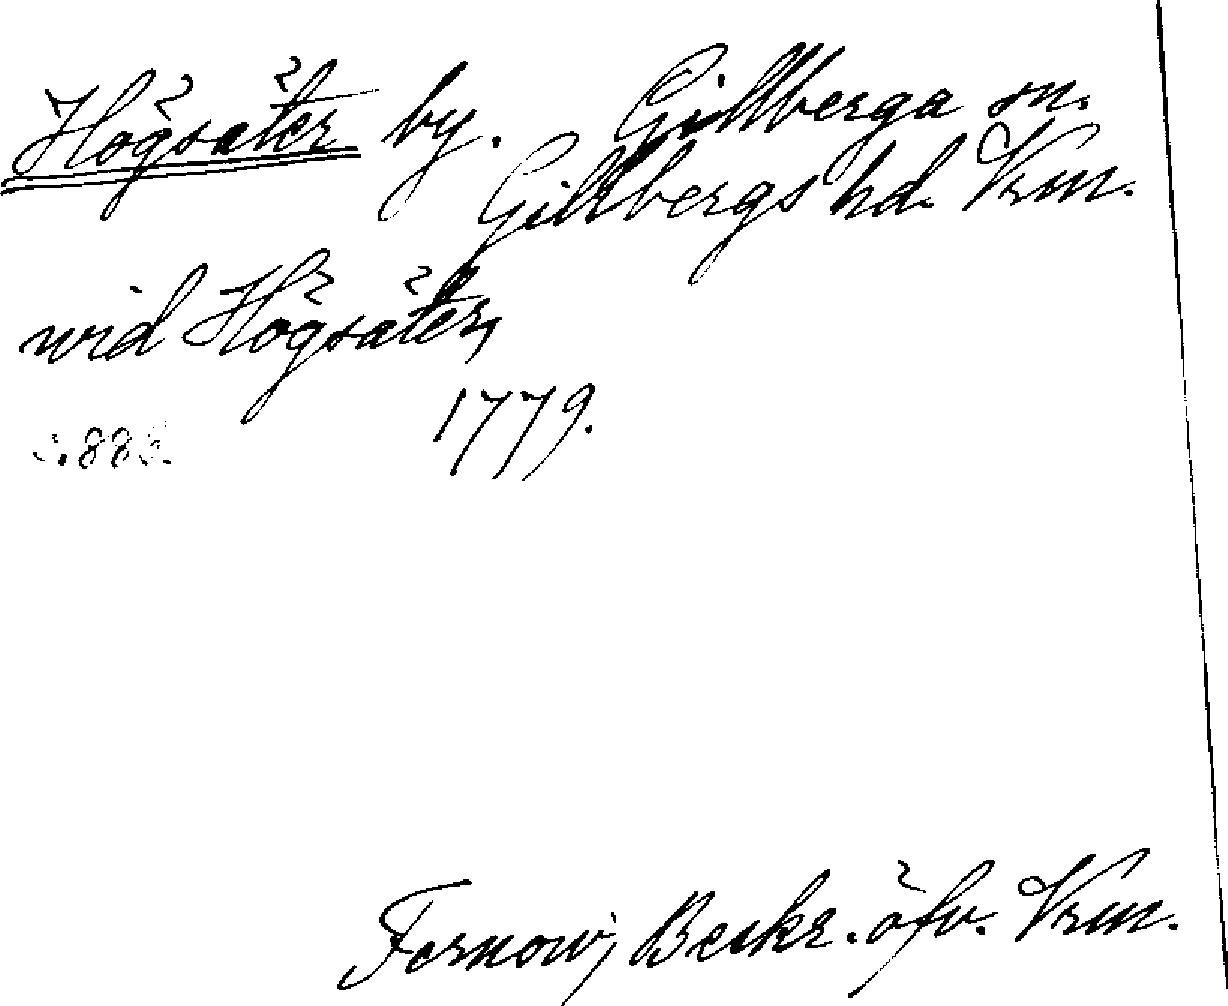 Högsäter by. Gillberga sn.
Gillbergs hd. Vrm.
wid Högsäter,
1779.
Fernow, Beskr. öfv. Vrm.